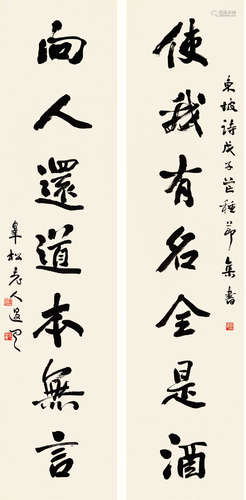 使我有名全是酒
東坡詩戊子芒種節集書
向人還道本無言